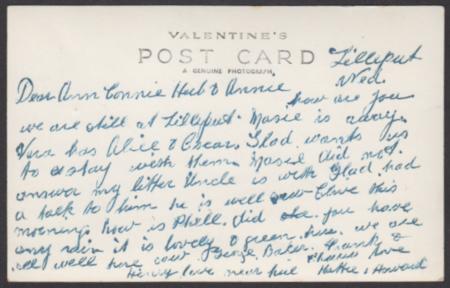 VALENTINE'S
POST CARD
A GENUINE PHOTOGRAPH
Lilliput
Wed.
Dear Ann Connie Hub & Annie
how are you
we are still at Lilliput. Masie is away
Vera has Alice & Oscar. Glad wants us
to stay with them Masie did not
answer my litter Uncle is with Glad had
a talk to him he is well saw Clive this
morning how is Phell. did you have
any rain it is lovely & green here. we are
all well here saw George Baker. Frank &
love
love near hill Hattie & Howard